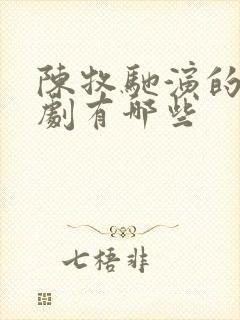 陳牧馳演的
劇有哪些
七梧非